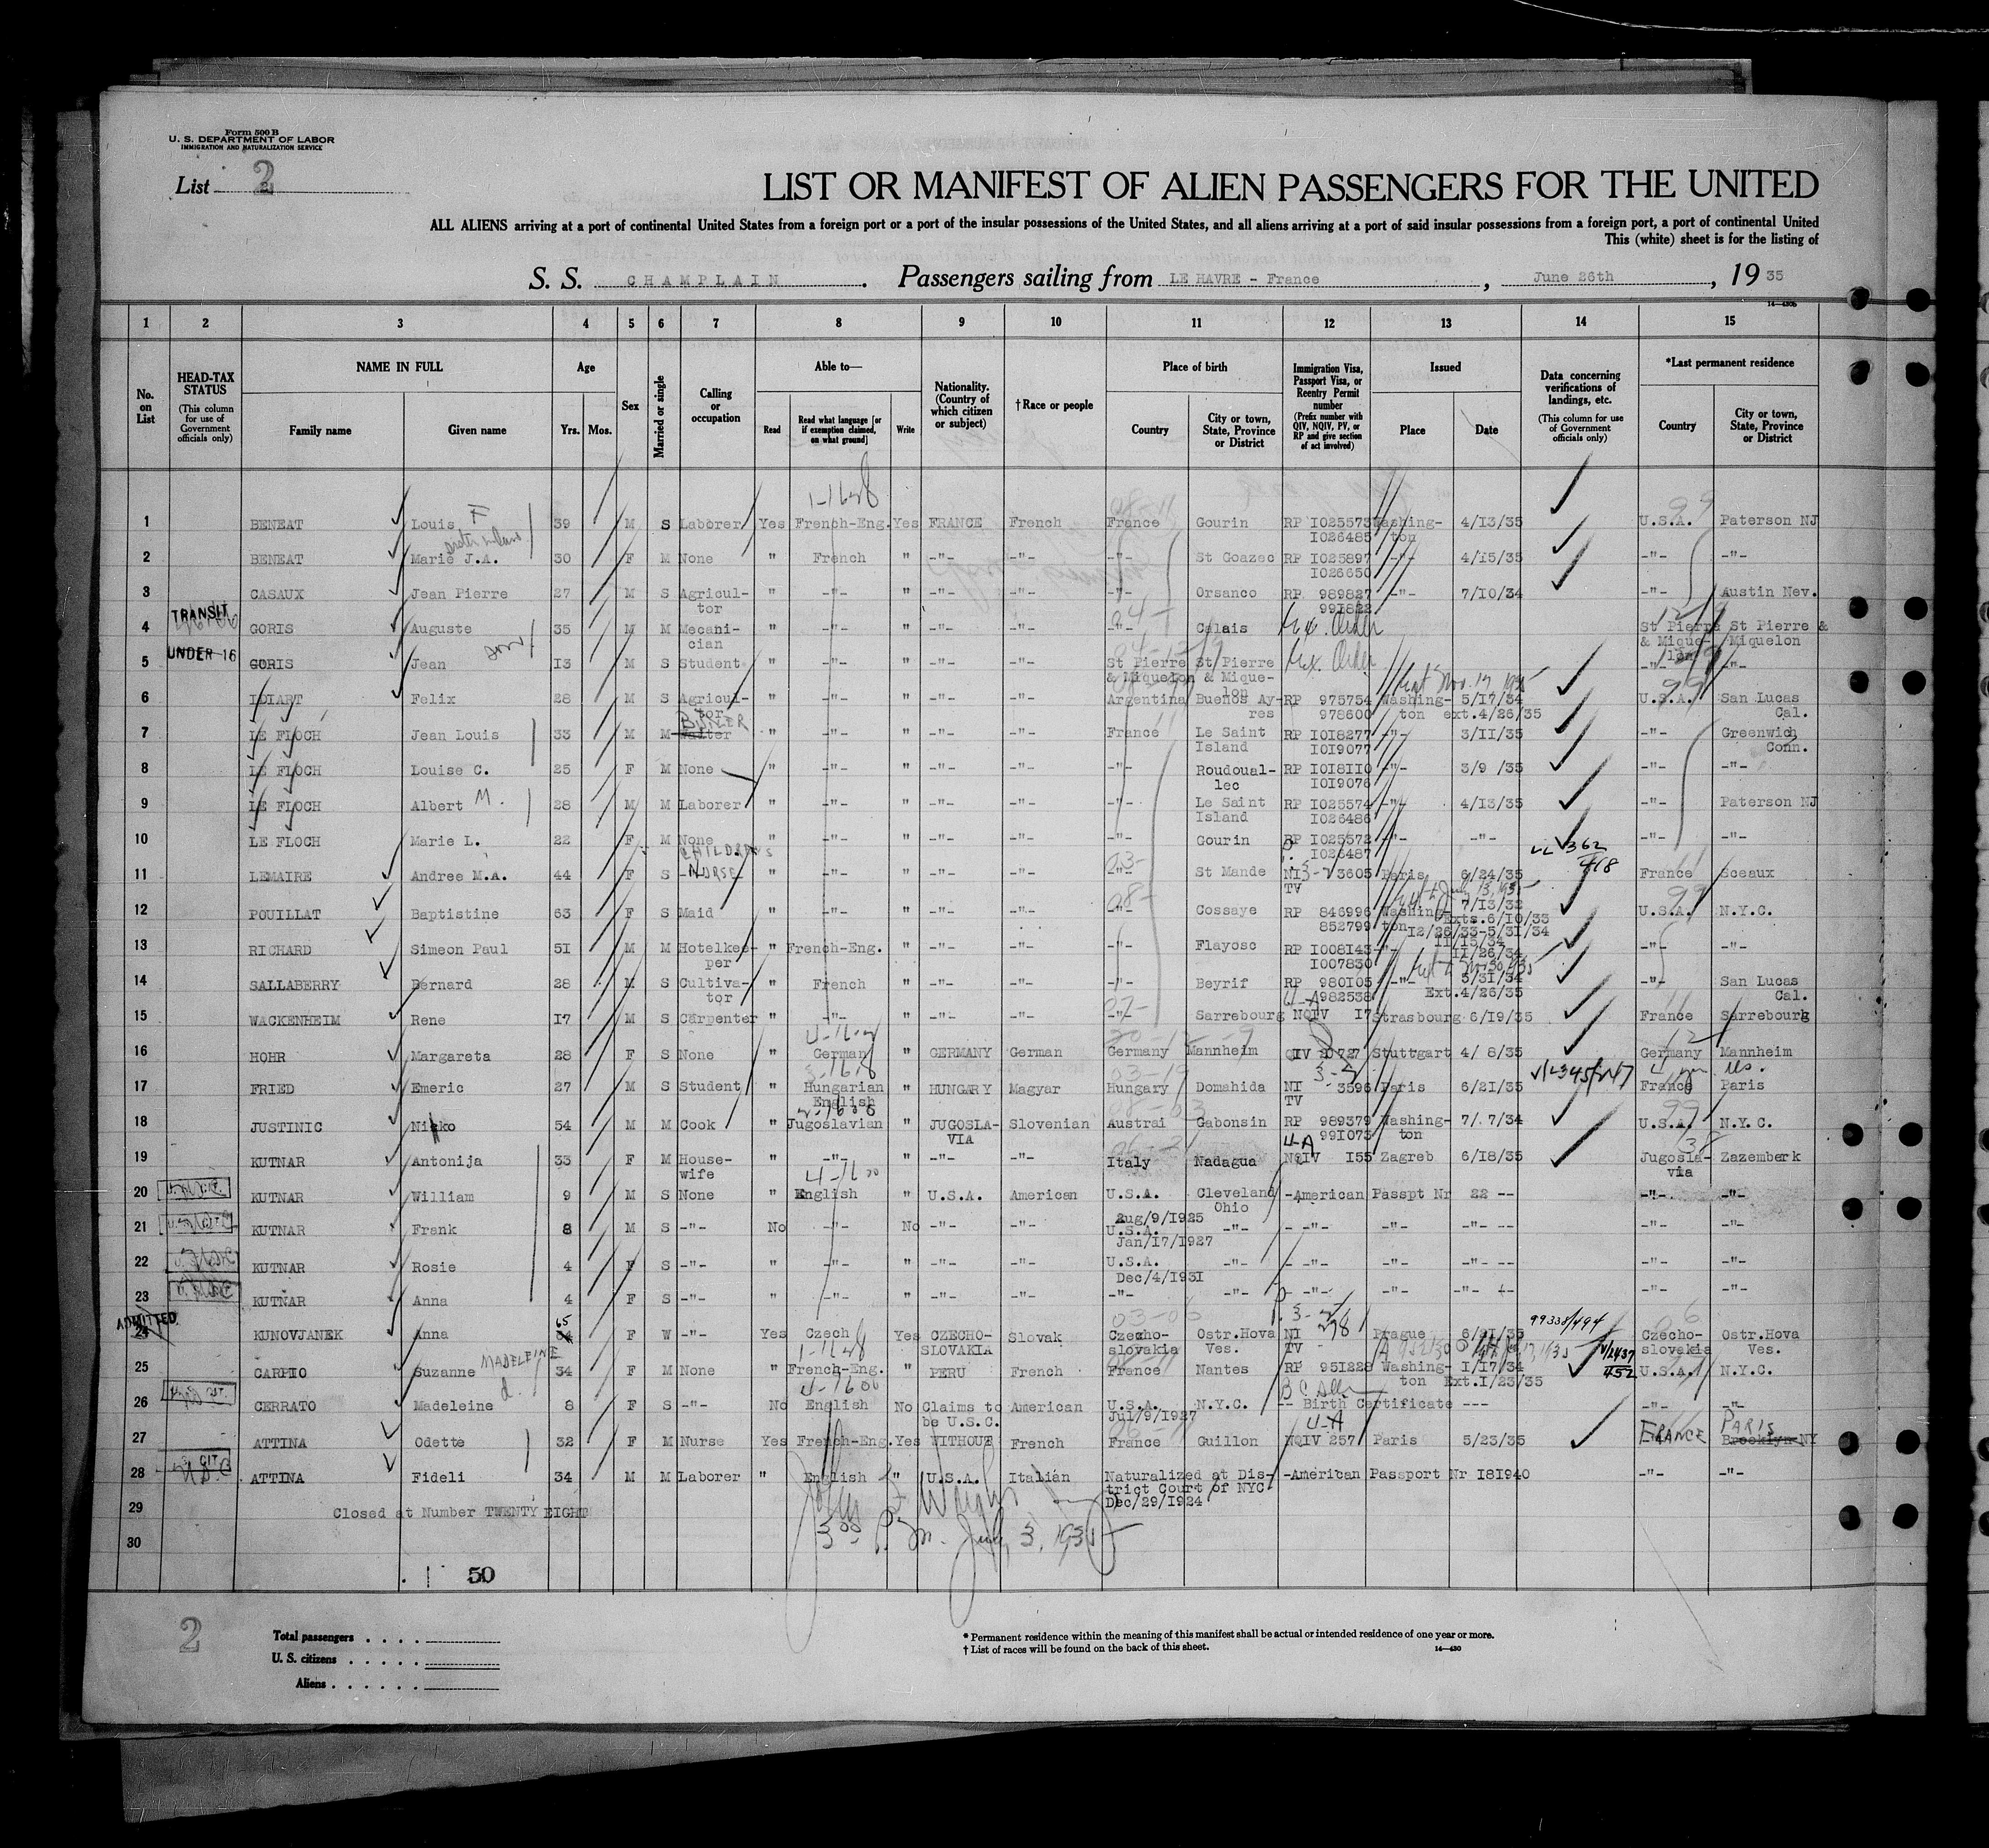 Form 500 B
U. S. DEPARTMENT OF LABOR
IMMIGRATION AND NATURALIZATION SERVICE
List 2
LIST OR MANIFEST OF ALIEN PASSENGERS FOR THE UNITED
ALL ALIENS arriving at a port of continental United States from a foreign port or a port of the insular possessions of the United States, and all aliens arriving at a port of said insular possessions from a foreign port, a port of continental United
This (white) sheet is for the listing of
S. S. CHAMPLAIN. Passengers sailing from LE HAVRE - France, June 26th, 19 35
1 2 3 4 5 6 7 8 9 10 11 12 13 14 15
No. on List
HEAD-TAX STATUS (This column for use of Government officials only)
NAME IN FULL Family name Given name
Age Yrs. Mos.
Sex
Married or single
Calling or occupation
Able to— Read Read what language [or if exemption claimed, on what ground] Write
Nationality. (Country of which citizen or subject)
†Race or people
Place of birth Country City or town, State, Province or District
Immigration Visa, Passport Visa, or Reentry Permit number (Prefix number with QIV, NQIV, PV, or RP and give section of act involved)
Issued Place Date
Data concerning verifications of landings, etc. (This column for use of Government officials only)
*Last permanent residence Country City or town, State, Province or District
1 BENEAT Louis F 39 M S Laborer Yes French-Eng. Yes FRANCE French France Gourin RP I025573 I026485 Washington 4/13/35 U.S.A. Paterson NJ
2 BENEAT Marie J.A. sister in law 30 F M None " French " -"- -"- -"- St Goazec RP I025897 I026650 -"- 4/15/35 -"- -"-
3 CASAUX Jean Pierre 27 M S Agricul-tor " -"- " -"- -"- -"- Orsanco RP 989827 991822 -"- 7/10/34 -"- Austin Nev.
4 TRANSIT GORIS Auguste 35 M M Mecani-cian " -"- " -"- -"- -"- Calais Ex. Order St Pierre & Mique-lon St Pierre & Miquelon
5 UNDER 16 GORIS Jean son 13 M S Student " -"- " -"- -"- St Pierre & Miquelon St Pierre & Mique-lon Ex. Order -"- -"-
6 IDIART Felix 28 M S Agricul-tor " -"- " -"- -"- Argentina Buenos Ay-res RP 975754 978600 Washing-ton 5/17/34 ext.4/26/35 U.S.A. San Lucas Cal.
7 LE FLOCH Jean Louis 33 M M Waiter BUTLER " -"- " -"- -"- France Le Saint Island RP I0I8277 I0I9077 -"- 3/II/35 -"- Greenwich Conn.
8 LE FLOCH Louise C. 25 F M None " -"- " -"- -"- -"- Roudoual-lec RP I0I8II0 I0I9076 -"- 3/9 /35 -"- -"-
9 LE FLOCH Albert M. 28 M M Laborer " -"- " -"- -"- -"- Le Saint Island RP I025574 I026486 -"- 4/13/35 -"- Paterson NJ
10 LE FLOCH Marie L. 22 F M None " -"- " -"- -"- -"- Gourin RP I025572 I026487 -"- -"- -"- -"-
11 LEMAIRE Andree M.A. 44 F S CHILDRENS NURSE " -"- " -"- -"- -"- St Mande NI TV 3605 Paris 6/24/35 France Sceaux
12 POUILLAT Baptistine 63 F S Maid " -"- " -"- -"- -"- Cossaye RP 846996 852799 Washing-ton 7/13/32 Exts.6/10/33 12/26/33-5/31/34 U.S.A. N.Y.C.
13 RICHARD Simeon Paul 51 M M Hotelkee-per " French-Eng. " -"- -"- -"- Flayosc RP I008143 I007830 -"- 11/15/34 11/26/34 -"- -"-
14 SALLABERRY Bernard 28 M S Cultiva-tor " French " -"- -"- -"- Beyrif RP 980105 982538 -"- 5/31/34 Ext.4/26/35 -"- San Lucas Cal.
15 WACKENHEIM Rene 17 M S Carpenter " -"- " -"- -"- -"- Sarrebourg NQIV 17 Strasbourg 6/19/35 France Sarrebourg
16 HOHR Margareta 28 F S None " German " GERMANY German Germany Mannheim QIV 20727 Stuttgart 4/ 8/35 Germany Mannheim
17 FRIED Emeric 27 M S Student " Hungarian English " HUNGARY Magyar Hungary Domahida NI TV 3596 Paris 6/21/35 France Paris
18 JUSTINIC Niko 54 M M Cook " Jugoslavian " JUGOSLA-VIA Slovenian Austrai Gabonsin RP 989379 991073 Washing-ton 7/.7/34 U.S.A. N.Y.C.
19 KUTNAR Antonija 33 F M House-wife " -"- " -"- -"- Italy Nadagua NQIV 155 Zagreb 6/18/35 Jugosla-via Zazemberk
20 KUTNAR William 9 M S None " English " U.S.A. American U.S.A. Aug/9/1925 Cleveland Ohio -American Passpt Nr 22 -- -"- -"-
21 KUTNAR Frank 8 M S -"- No -"- No -"- -"- U.S.A. Jan/17/1927 -"- -"- -"- -"- -- -"- -"-
22 KUTNAR Rosie 4 F S -"- " -"- " -"- -"- U.S.A. Dec/4/1931 -"- -"- -"- -"- -- -"- -"-
23 KUTNAR Anna 4 F S -"- " -"- " -"- -"- -"- -"- -"- -"- -"- -"- -"-
24 ADMITTED KUNOVJANEK Anna 65 F W -"- Yes Czech Yes CZECHO-SLOVAKIA Slovak Czecho-slovakia Ostr.Hova Ves. NI TV 298 Prague 6/21/35 99338/494 Czecho-slovakia Ostr.Hova Ves.
25 CARPIO Suzanne MADELEINE 34 F M None " French-Eng. " PERU French France Nantes RP 951228 Washing-ton 1/17/34 Ext.1/23/35 U.S.A. N.Y.C.
26 CERRATO Madeleine d. 8 F S -"- No English No Claims to be U.S.C. American U.S.A. Jul/9/1927 N.Y.C. -- Birth Certificate --- -"- -"-
27 ATTINA Odette 32 F M Nurse Yes French-Eng. Yes WITHOUT French France Guillon NQIV 257 Paris 5/23/35 FRANCE PARIS Brooklyn NY
28 ATTINA Fideli 34 M M Laborer " English " U.S.A. Italián Naturalized at Dis-trict Court of NYC Dec/29/1924 -American Passport Nr 181940 -"- -"-
29 Closed at Number TWENTY EIGHT
30 3 00 P. m. July 3, 1935
50
2
Total passengers
U. S. citizens
Aliens
* Permanent residence within the meaning of this manifest shall be actual or intended residence of one year or more.
† List of races will be found on the back of this sheet.
14—430